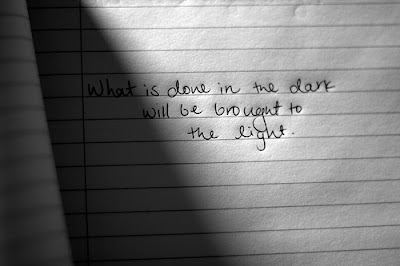 What is done in the dark
will be brought to
the light.